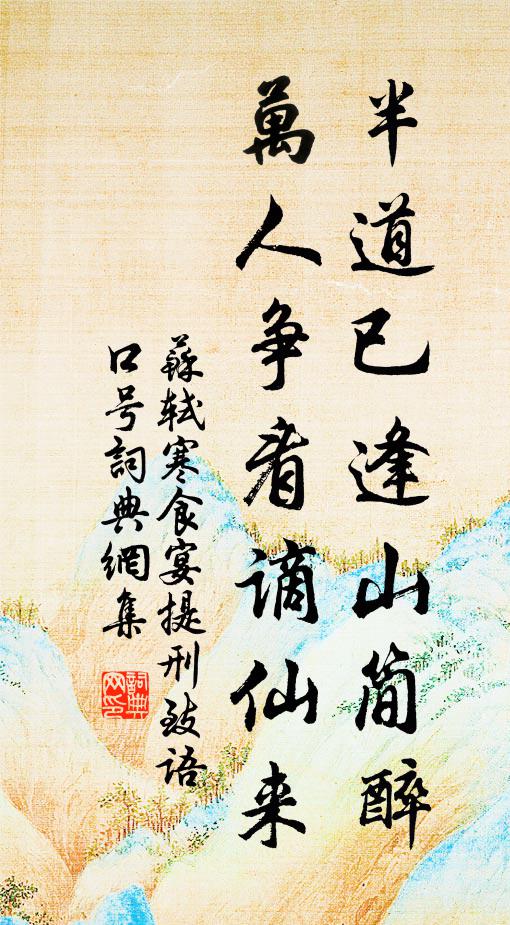 半道已逢山简醉
萬人争看谪仙来
蘇軾寒食宴提刑致语
口号詞典網集
詞典
网印